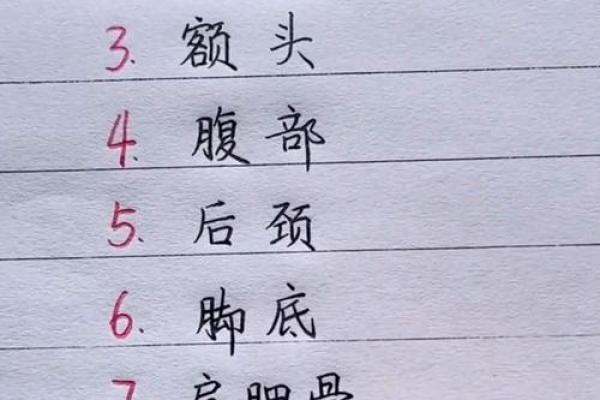 3. 额头
4. 腹部
5. 后颈
6. 脚底
7. 肩胛骨